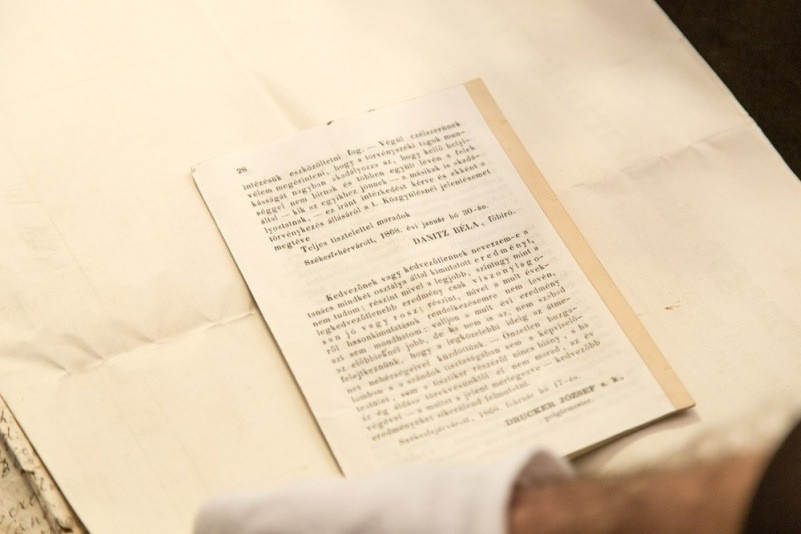 28
intézésük eszközöltetni fog. — Végül czélszerünek
vélem megérinteni, hogy a törvényszéki tagok mun-
kásságát nagyban akadályozza az, hogy kellő helyi-
séggel nem birnak és többen együtt lévén a felek
által — kik az egyikhez jönnek — a másikak is akadá-
lyoztatnak, — ez iránt intézkedést kérve és ekként a
törvénykezés állásáról a t. Közgyülésnél jelentésemet
megtéve
Teljes tisztelettel maradok
Székesfehérvárott, 1868. évi január hó 30-án.
DANITZ BÉLA, főbiró.
Kedvezőnek vagy kedvezőtlennek nevezzem-e a
tanács mindkét osztálya által kimutatott eredményt,
nem tudom; részint mivel a legjobb, szintugy mint a
legkedvezőtlenebb eredmény csak viszonylago-
san jó vagy rosz! részint, mivel a mult évek-
ről hasonkimutatások rendelkezésemre nem lévén,
azt sem mondhatom: valjon a mult évi eredmény
az előbbieknél jobb, de ha nem is az, nem szabad
felejtkeznünk, hogy a legközelebbi ideig az átme-
net nehézségeivel küzdöttünk. — Önzetlen buzga-
lomban a századok tisztaságában sem a képviselő-
testület, sem a tisztikar részéről nincs hiány, s ha
az ég áldása törekvésünktől el nem marad, az év
végével — a multat a jelent mérlegezve — kedvezőbb
eredményeket sikerülend felmutatni.
Székesfejérvárott, 1868. február hó 17-én.
DRUCKER JÓZSEF s. k.
polgármester.